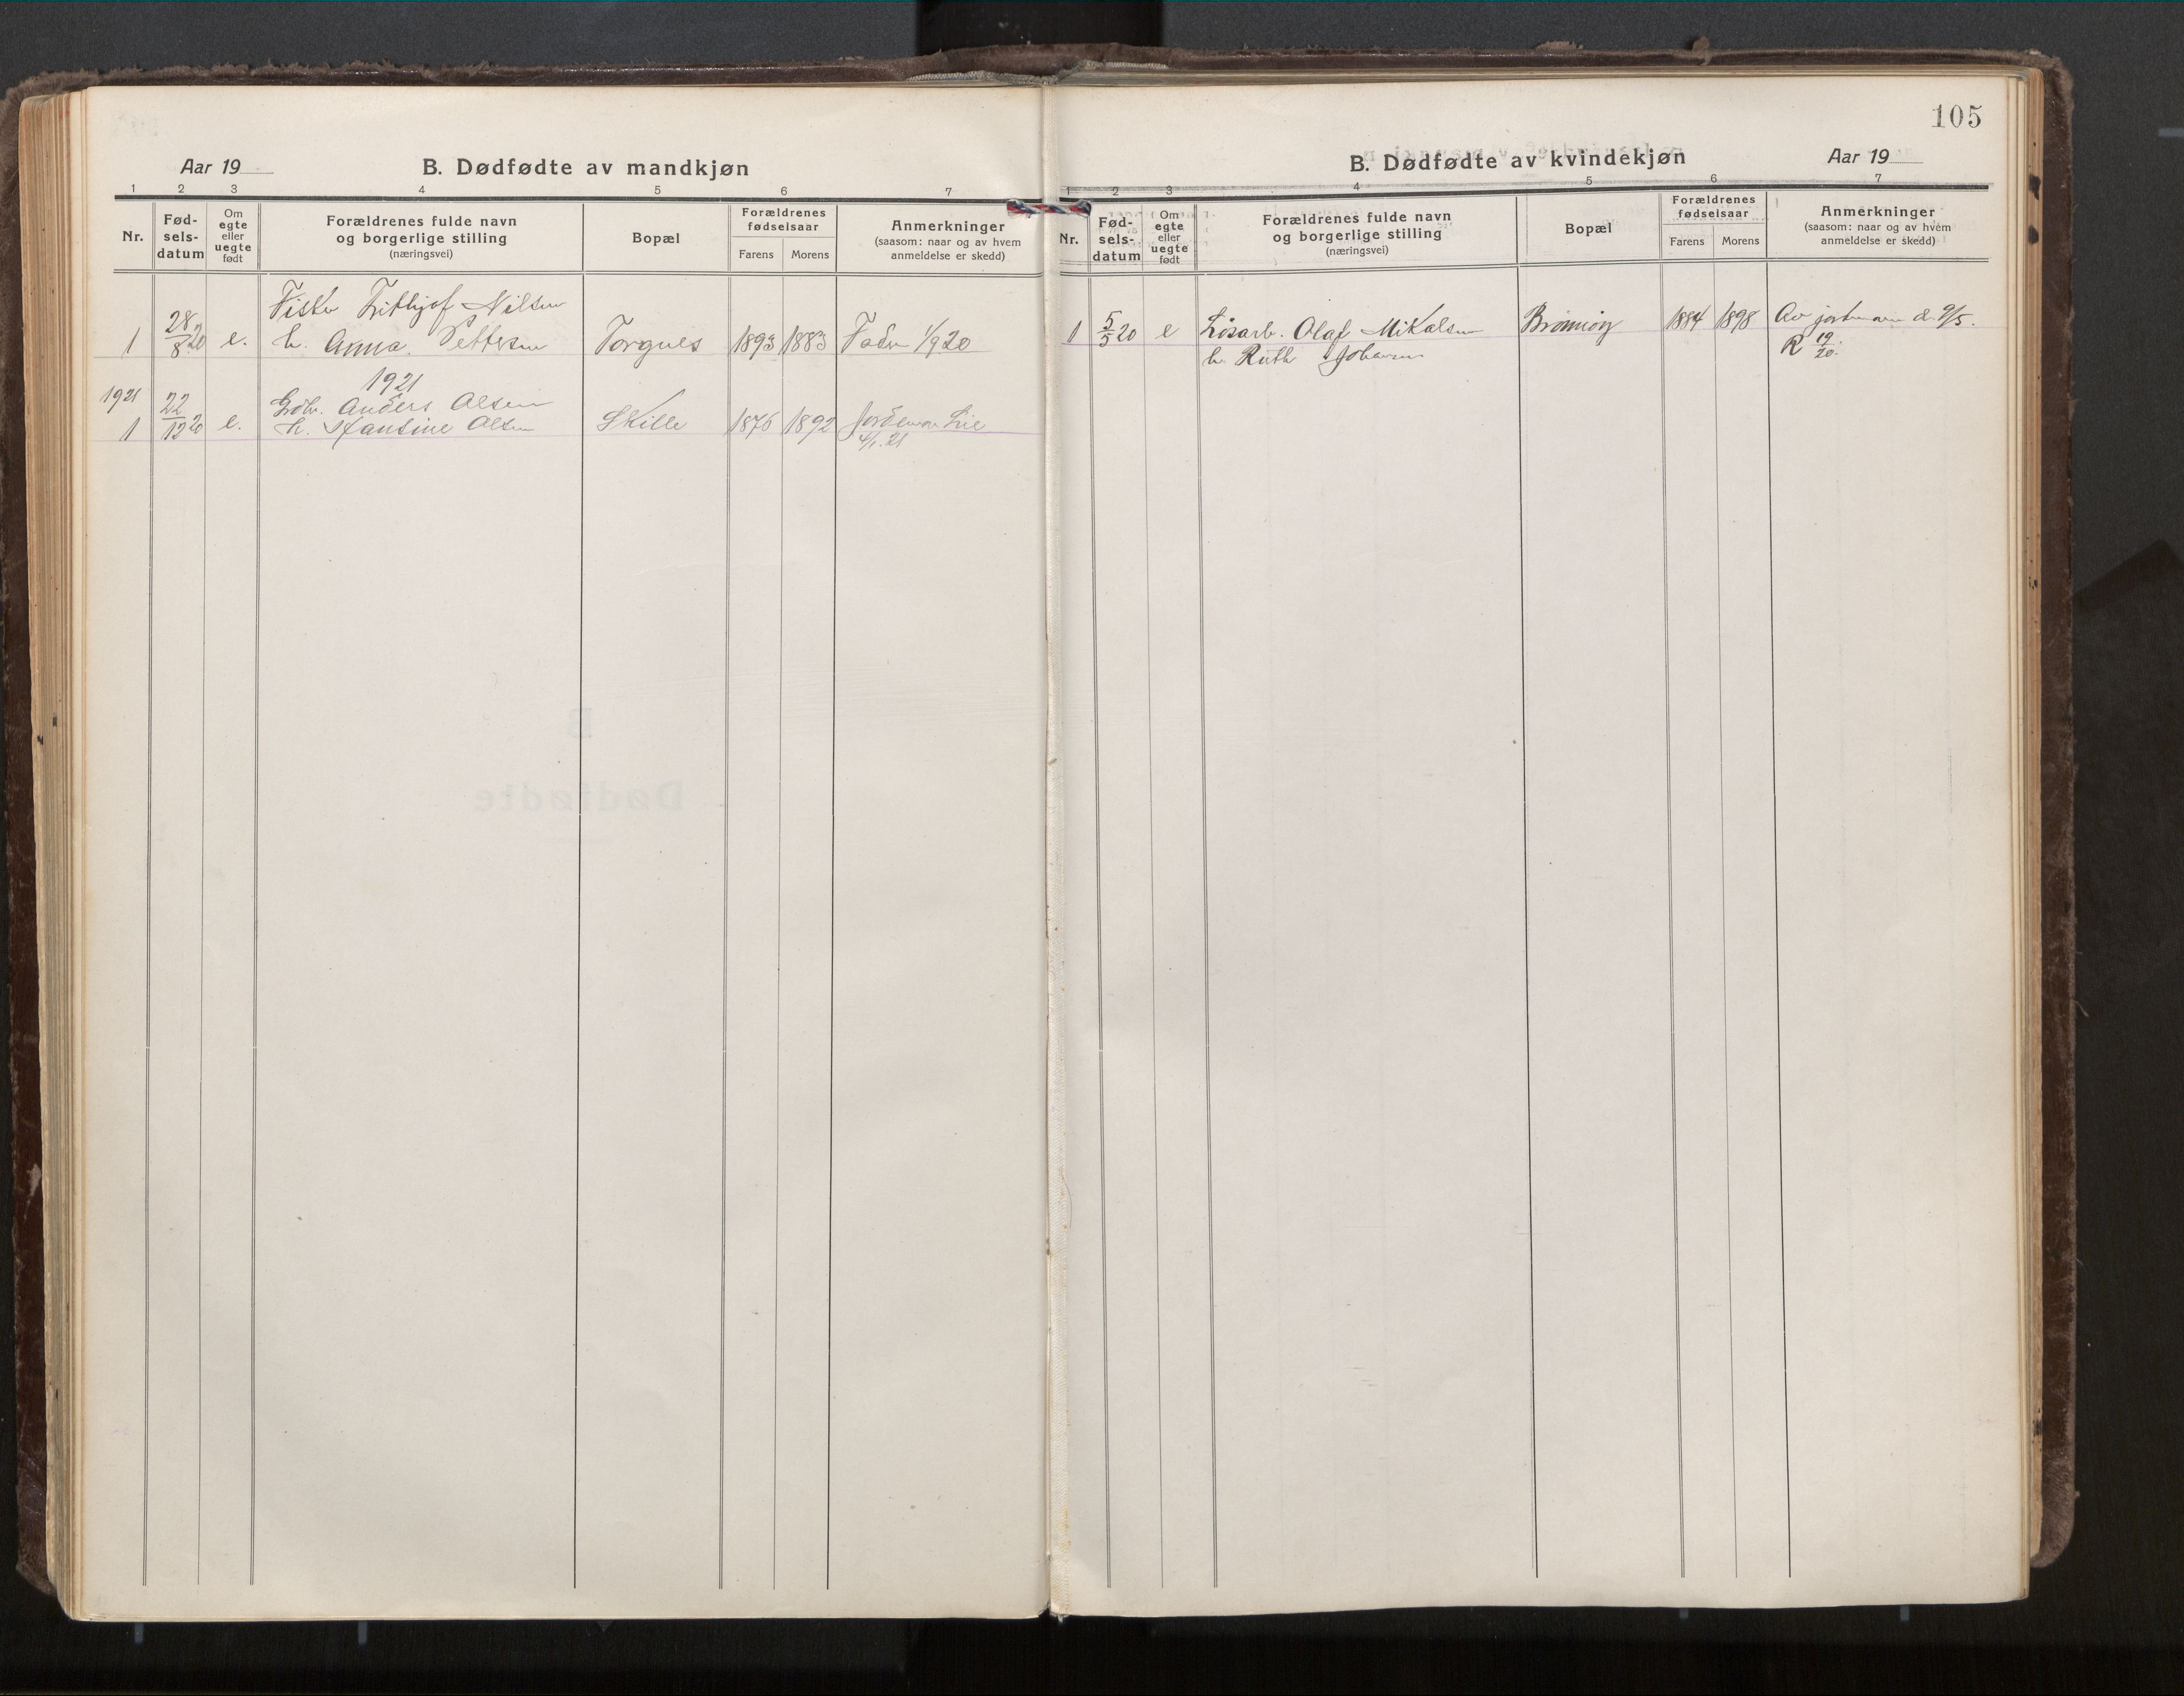 Aar 19
B. Dødfødte av mandkjøn
1 2 3 4 5 6 7
Nr.
Fød-
sels-
datum
Om
egte
eller
uegte
født
Forældrenes fulde navn
og borgerlige stilling
(næringsvei)
Bopæl
Forældrenes
fødselsaar
Farens Morens
Anmerkninger
(saasom: naar og av hvem
anmeldelse er skedd)
Fisker Frithjof Nilsen
1 28/8 20 e. h. Anna Pettersen Torgnes 1893 1883 Fader 1/9 20
1921
1921
Anders Olsen
1 22/12 20 e. h. Olsen Skille 1876 1892 Lie
4/1. 21
105
B. Dødfødte av kvindekjøn
Aar 19
1 2 3 4 5 6 7
Nr.
Fød-
sels-
datum
Om
egte
eller
uegte
født
Forældrenes fulde navn
og borgerlige stilling
(næringsvei)
Bopæl
Forældrenes
fødselsaar
Farens Morens
Anmerkninger
(saasom: naar og av hvem
anmeldelse er skedd)
1 5/5 20 e Løsarb. Olaf Mikalsen Brønnøy 1884 1898 Av d. 9/5.
h. Ruth Johansen
R 19/20.